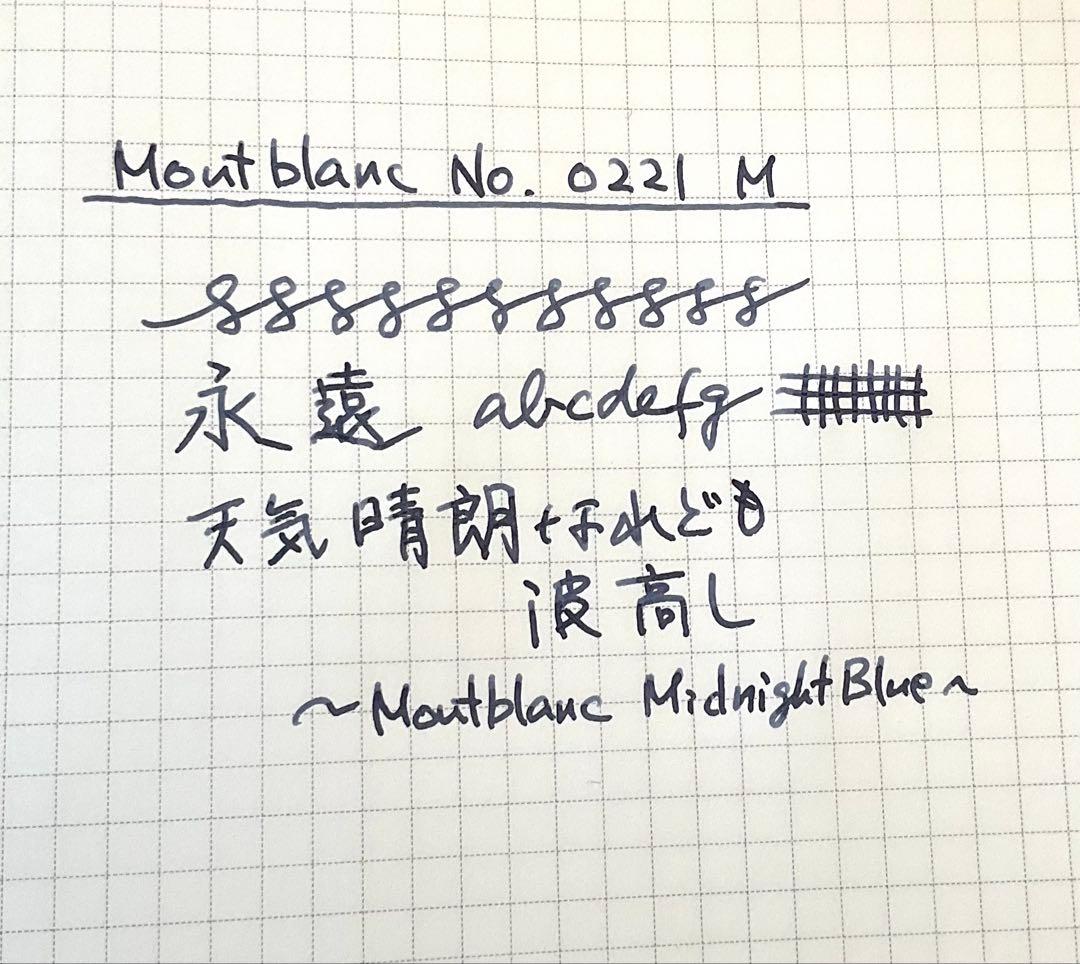 Montblanc No. 0221 M
永遠 abcdefg
天気晴朗なれども
波高し
~Montblanc MidnightBlue~